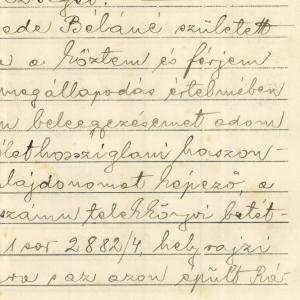 ede Béláné született
a a köztem és férjem
megállapodás értelmében
n beleegyezésemet adom
élethossziglani haszon-
lajdonomat képező, a
számu telekkönyvi betét-
1 sor 2882/4, helyrajzi
ra s az azon épült